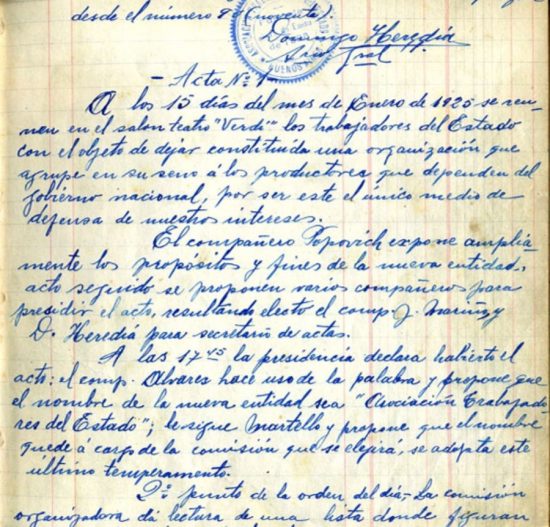 desde el número 90 (noventa).
Domingo Heredia
Srio Gral
BUENOS AIRES
— Acta Nº 1 —
A los 15 días del mes de Enero de 1925 se reu-
nen en el salon teatro "Verdi" los trabajadores del Estado
con el objeto de dejar constituida una organización que
agrupe en su seno á los productores que dependen del
gobierno nacional, por ser este el único medio de
defensa de nuestros intereses.
El compañero Popovich expone amplia-
mente los propósitos y fines de la nueva entidad,
acto seguido se proponen varios compañeros para
presidir el acto, resultando electo el comp. J. Mariño y
D. Heredia para secretario de actas.
A las 17 45 la presidencia declara habierto el
acto: el comp. Alvares hace uso de la palabra y propone que
el nombre de la nueva entidad sea "Asociación Trabajado-
res del Estado"; le sigue Martello y propone que el nombre
quede á cargo de la comisión que se elegirá, se adopta este
último temperamento.
2º punto de la orden del día,- La comisión
organizadora dá lectura de una lista donde figuran